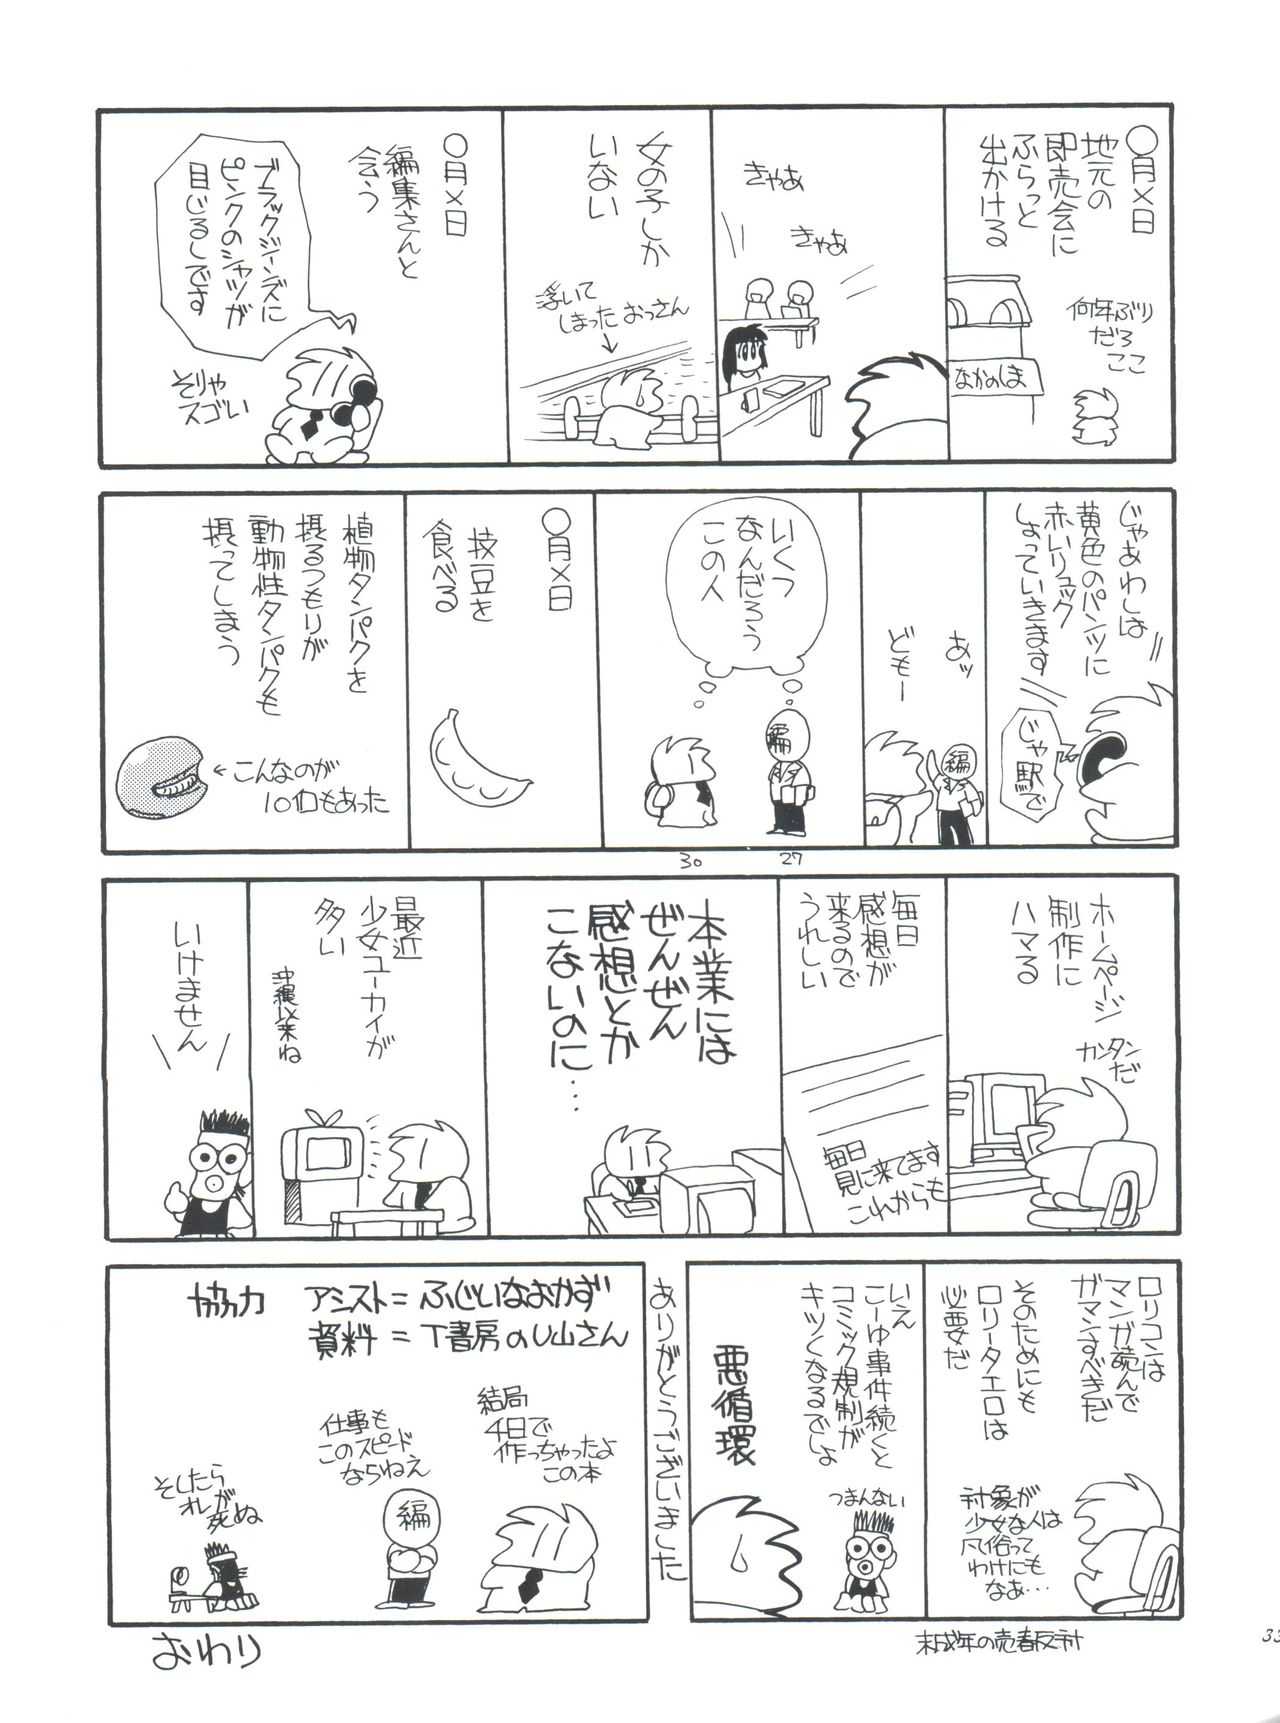 〇月×日
地元の
即売会に
ふらっと
出かける
何年ぶり
だろ
ここ
なかのしま
きゃあ
きゃあ
女の子しか
いない
浮いて
しまったおっさん
〇月×日
編集さんと
会う
ブラックジーンズに
ピンクのシャツが
目じるしです
そりゃ
スゴい
じゃあわしは
黄色のパンツに
赤いリュック
しょっていきます
じゃ駅で
あッ
どもー
編
いくつ
なんだろう
この人
編
30
27
〇月×日
枝豆を
食べる
植物タンパクを
摂るつもりが
動物性タンパクも
摂ってしまう
←こんなのが
10個もあった
ホームページ
制作に
ハマる
カンタンだ
毎日
感想が
来るので
うれしい
毎日
見に来てます
これからも
本業には
ぜんぜん
感想とか
こないのに…
最近
少女ユーカイが
多い
沖縄以来ね
いけません
ロリコンは
マンガ読んで
ガマンすべきだ
そのためにも
ロリータエロは
必要だ
対象が
少女な人は
風俗って
わけにも
なぁ…
いえ
こーゆ事件続くと
コミック規制が
キツくなるでしょ
つまんない
悪循環
未成年の売春反対
ありがとうございました
協力
アシスト=ふじいなおかず
資料=T書房のU山さん
結局
4日で
作っちゃったよ
この本
仕事も
このスピード
ならねえ
編
そしたら
オレが
死ぬ
おわり
33